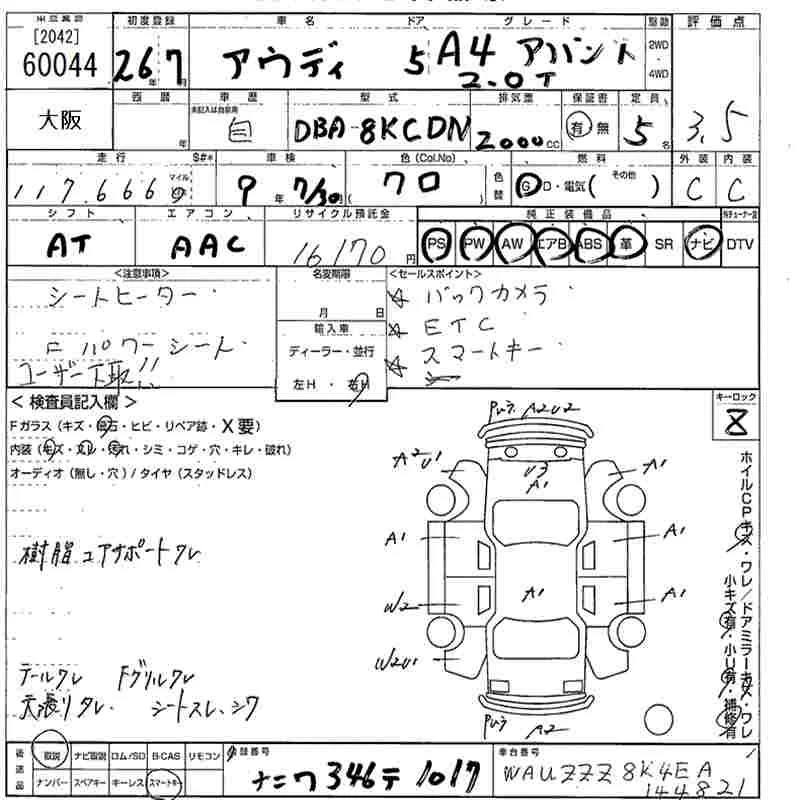 [2042]
60044
初度登録 車名 ドア グレード 駆動 評価点
26年 7月 アウディ 5 A4 アバント 2.0T 2WD 4WD
大阪
西暦 車歴 型式 排気量 保証書 定員
年 未記入は自家用 自 DBA-8KCDN 2000cc 有 無 5名 3.5
走行 S#* 車検 色(Col.No) 色替 燃料 外装 内装
117,666 マイル 9年 7/30 クロ G・D・電気( その他 ) C C
シフト エアコン リサイクル預託金 純正装備品
AT AAC 16170円 PS PW AW エアB ABS 革 SR ナビ DTV
<注意事項> 名変期限 <セールスポイント>
シートヒーター 月 日 ☆ バックカメラ
輸入車 ☆ ETC
Fパワーシート ディーラー・並行 ☆ スマートキー
ユーザー下取!!
左H・右H
<検査員記入欄> キーロック
Fガラス(キズ・飛石・ヒビ・リペア跡・X要)
内装(キズ・スレ・汚れ・シミ・コゲ・穴・キレ・破れ)
オーディオ(無し・穴)/タイヤ(スタッドレス)
A2U2
A2U1 U3 A1
A1
A1 A1
樹脂エアサポートワレ
W2 A1 A1
W2U1
テールワレ Fグリルワレ
天張りタレ シートスレ、シワ
A2
ホイルCPキズ・ワレ/ドアミラーキズ・ワレ
小キズ有・小U有・補修有
後送品 取説 ナビ取説 ロム/SD B-CAS リモコン 登録番号 車台番号
ナンバー スペアキー キーレス スマートキー ナニワ 346 テ 1017 WAUZZZ8K4EA
144821